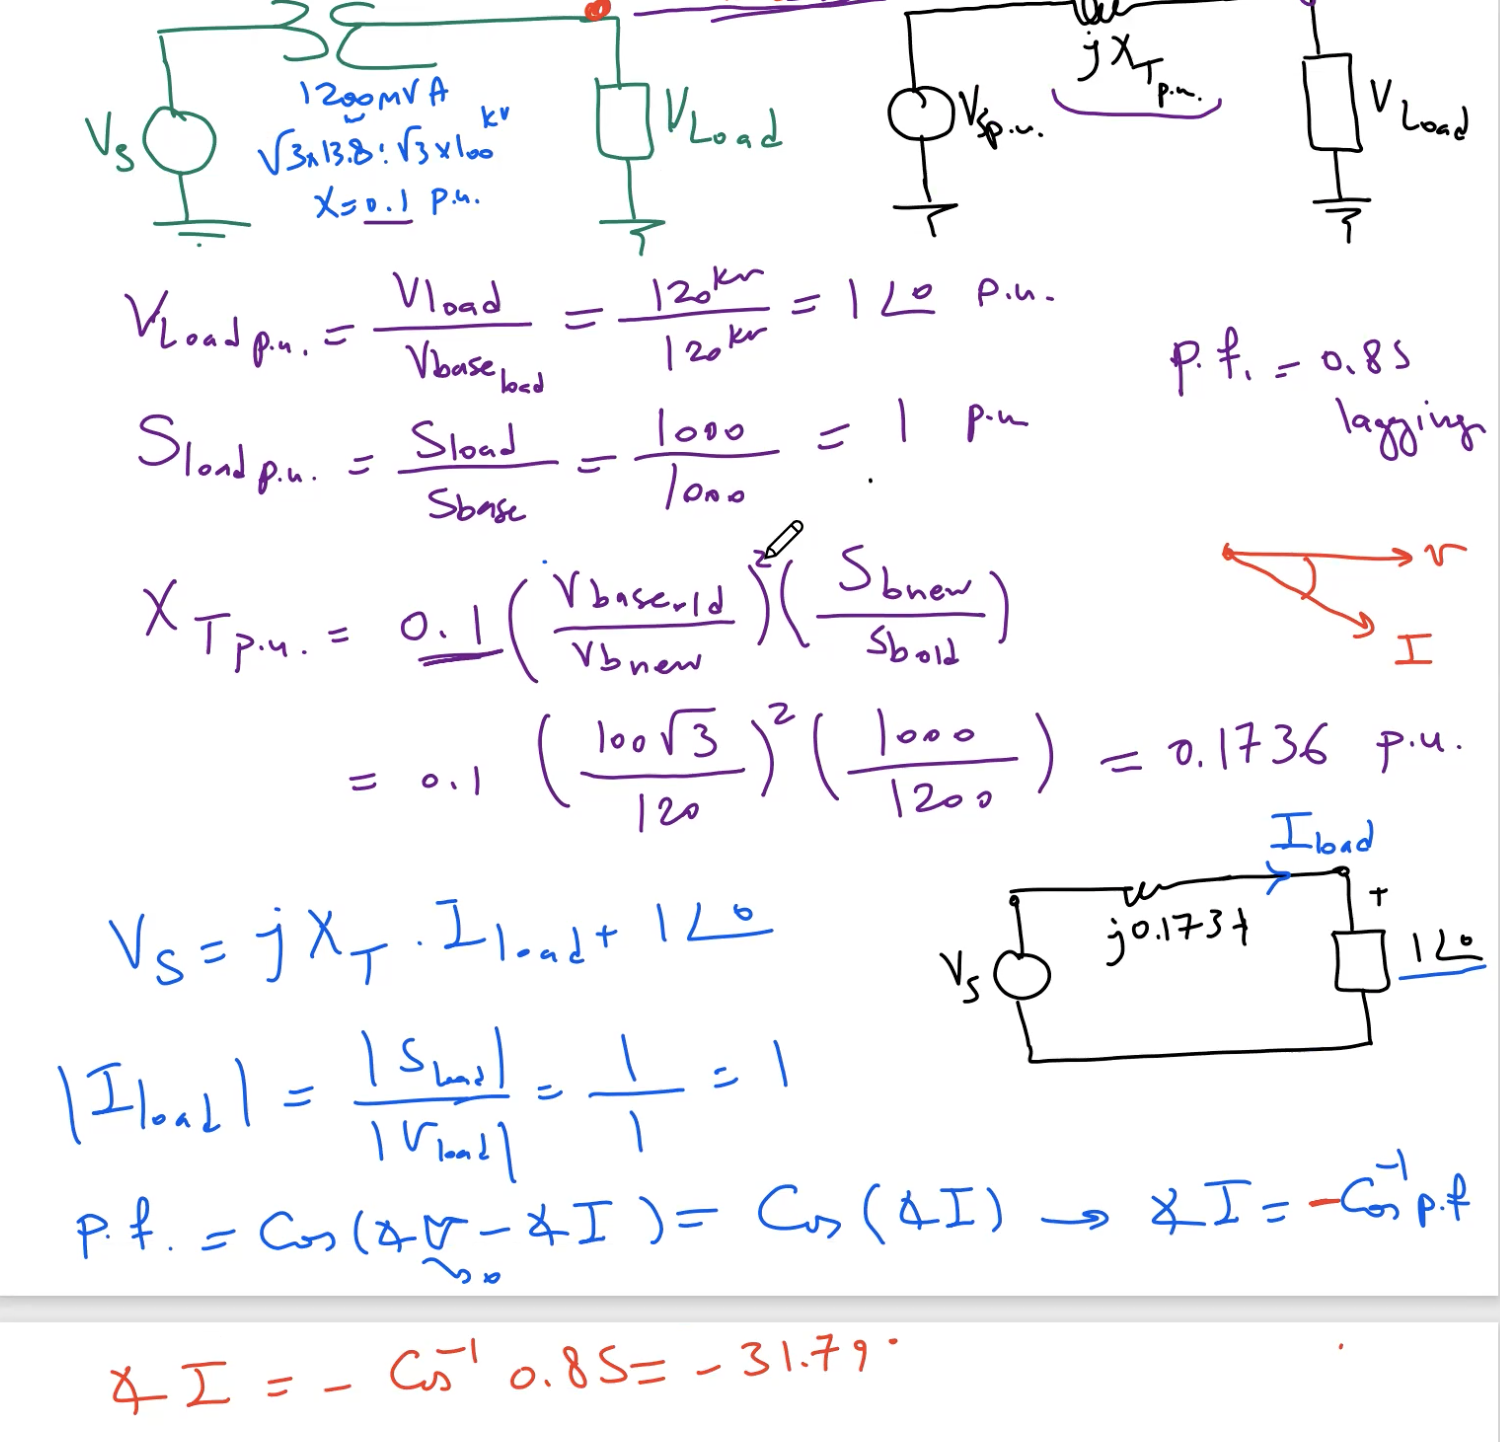 jX_T p.u.
1200 MVA
V_S √3x13.8 : √3x100 kV V_Load V_S p.u. V_Load
X=0.1 p.u.
V_Load p.u. = Vload / Vbase load = 120 kv / 120 kv = 1∠0 p.u.
p.f. = 0.85
lagging
S_load p.u. = Sload / Sbase = 1000 / 1000 = 1 p.u
v
I
X_T p.u. = 0.1 (Vbase old / Vb new)² (Sb new / Sb old)
= 0.1 (100√3 / 120)² (1000 / 1200) = 0.1736 p.u.
I_load
V_S = jX_T . I_load + 1∠0
+
V_S j0.173 1∠0
|I_load| = |Sload| / |Vload| = 1 / 1 = 1
p.f. = Cos(∡V - ∡I) = Cos(∡I) → ∡I = -Cos⁻¹ p.f
0
∡I = - Cos⁻¹ 0.85 = - 31.79°